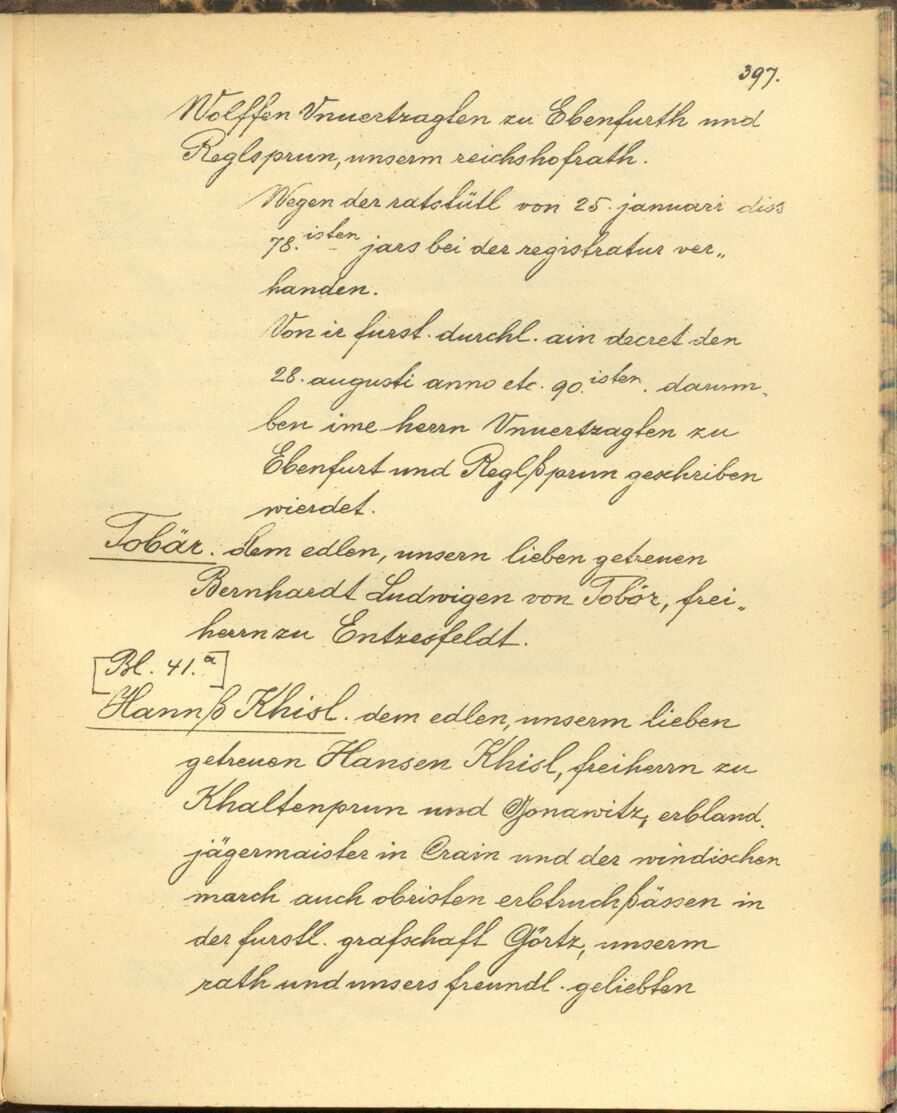 397.
Wolffen Vnuertzagten zu Ebenfurth und
Reglsprun, unserm reichshofrath.
Wegen der ratstütl von 25. januari diss
78.isten jars bei der registratur ver„
handen.
Von ir furst. durchl. ain decret den
28. augusti anno etc. 90.isten. darum„
ben ime herrn Vnuertzagten zu
Ebenfurt und Reglßprun geschriben
wierdet.
Tobär. dem edlen, unsern lieben getreuen
Bernhardt Ludwigen von Tobör, frei„
herrn zu Entzesfeldt.
[Bl. 41.a]
Hannß Khisl. dem edlen, unserm lieben
getreuen Hansen Khisl, freiherrn zu
Khaltenprun und Gonawitz, erbland„
jägermaister in Crain und der windischen
march auch obristen erbtruchßässen in
der furstl. grafschaft Görtz, unserm
rath und unsers freundl. geliebten